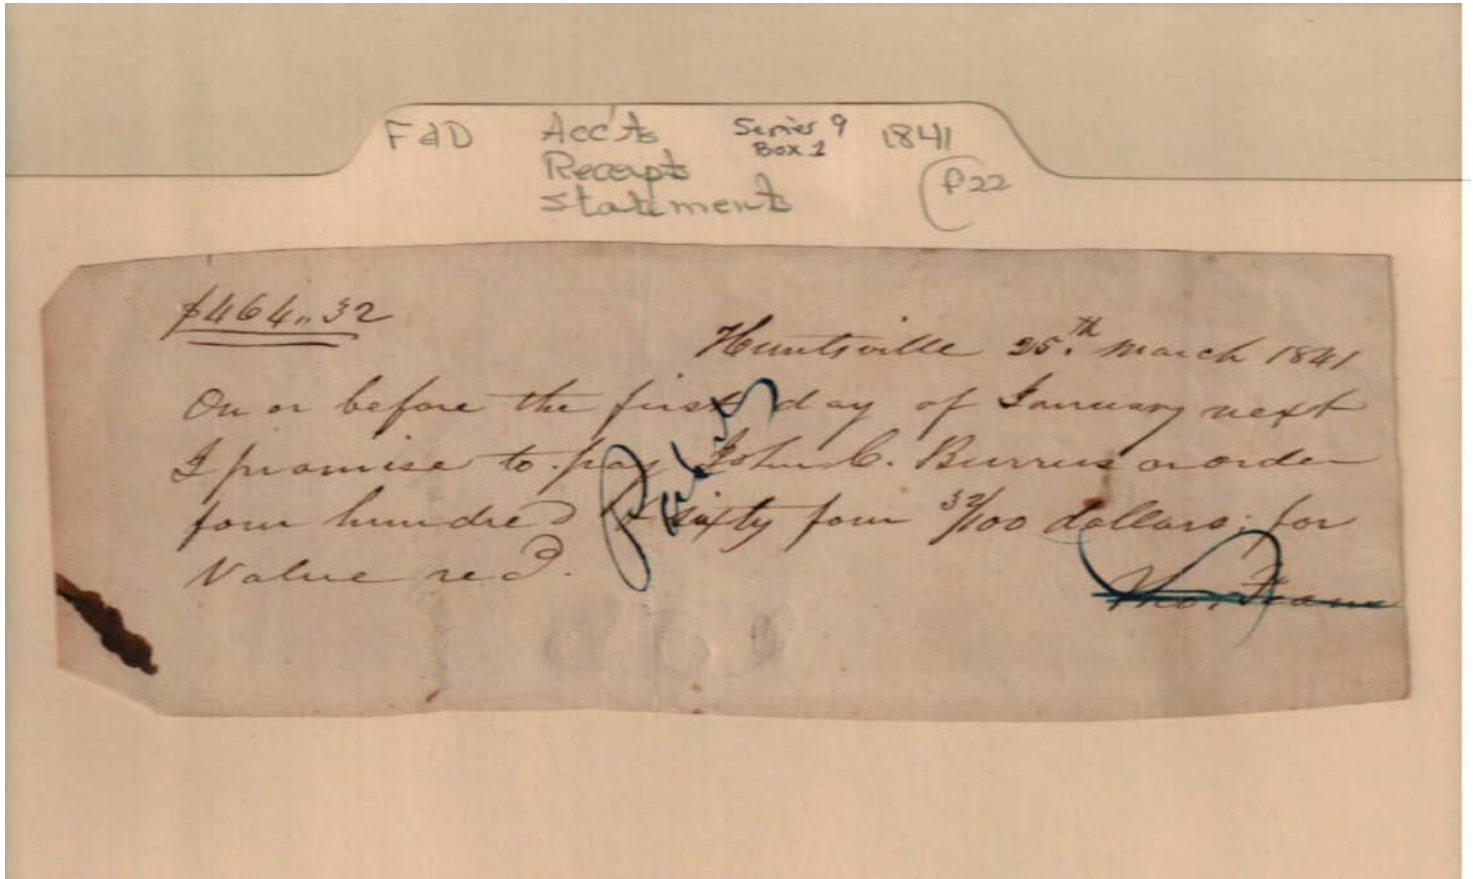 F&D Acc'ts Series 9 1841
Box 1
Receipts
Statements P22
$464.. 32
Huntsville 25.th March 1841
On or before the first day of January next
I promise to pay John C. Burrus or order
four hundred & sixty four 32/100 dollars, for
Value recd.
Thos. Fearn